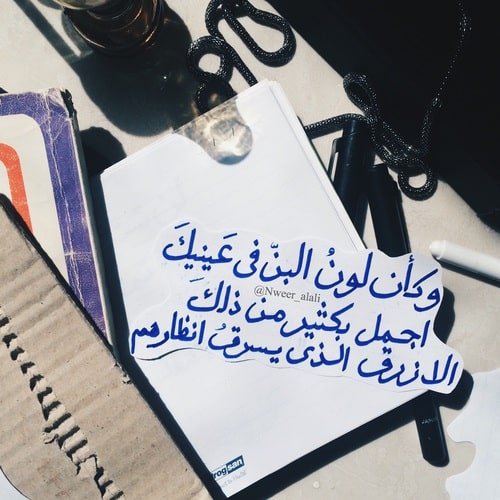 وكأن لونُ البنّ في عَينيكَ
@Nweer_alali
اجمل بكثير من ذلكَ
الازرق الذي يسرقُ انظارهم
rogsan